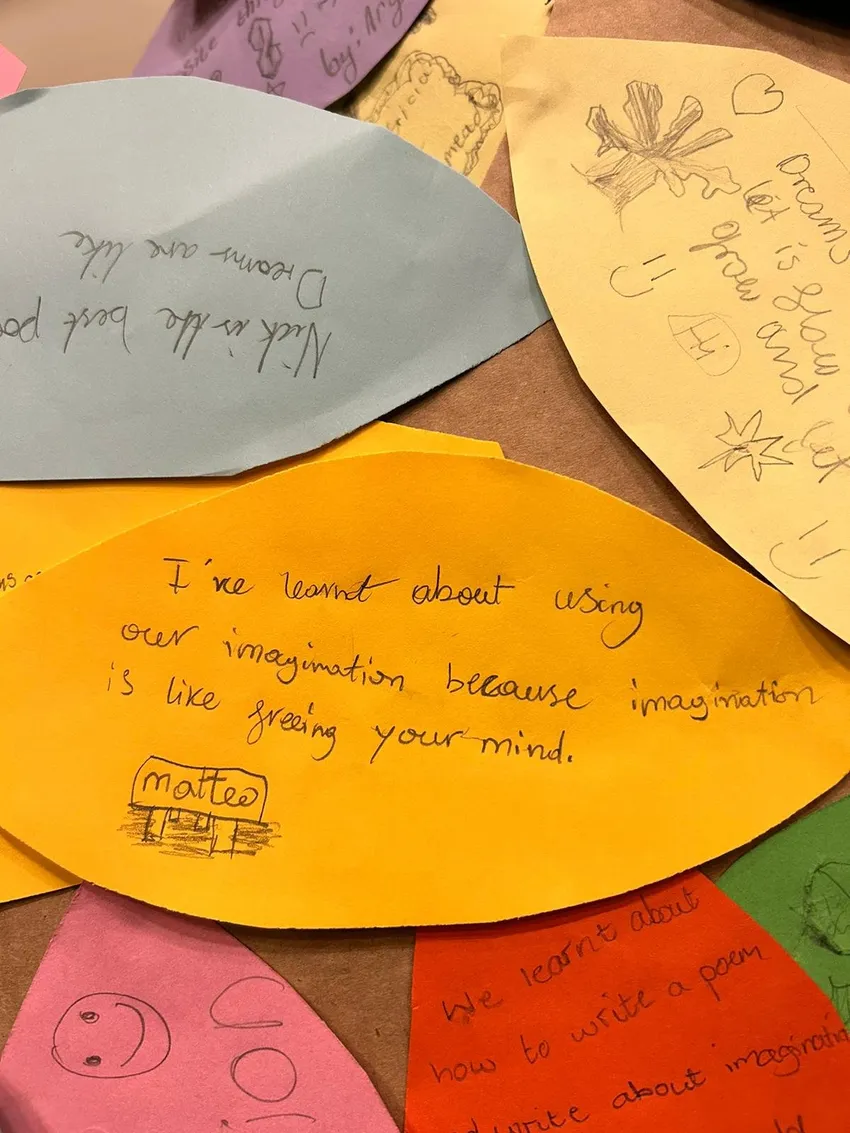 by: Ary
Nick is the best
Dreams are like
Dreams
let is slow
grow and
let
Hi
I've learnt about using
our imagination because imagination
is like freeing your mind.
matteo
We learnt about
how to write a poem
write about
YO